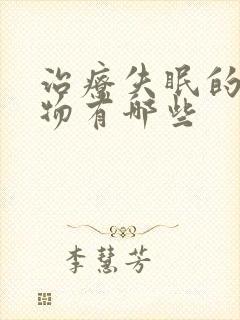 治疗失眠的
物有哪些
李慧芳